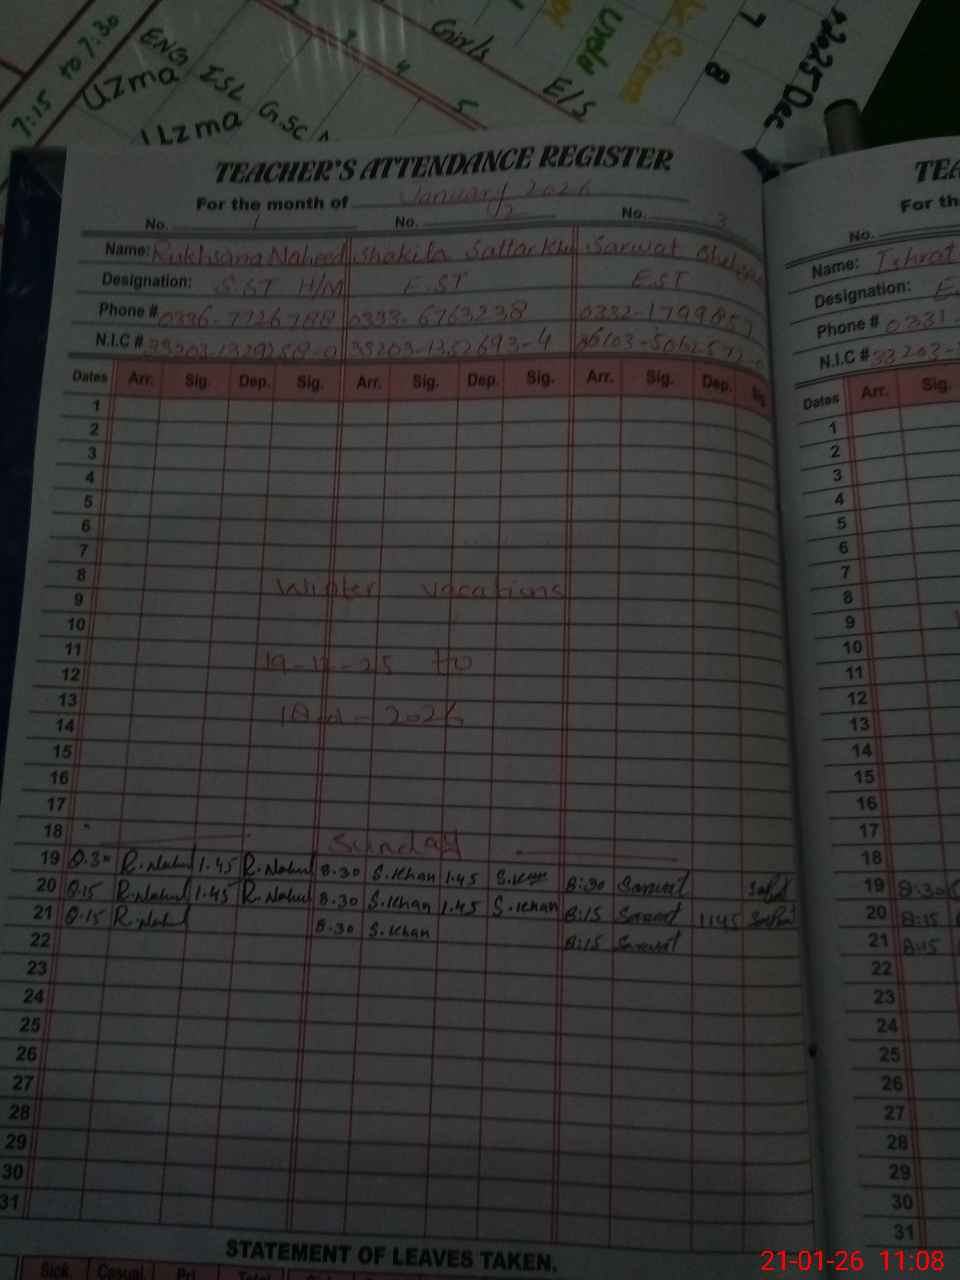 7:15 to 7:30
ENG
ISL
G.SC
Uzma
Uzma
4
5
Girls
E/S
Urdu
Science
7
8
2025 Dec
TEACHER'S ATTENDANCE REGISTER
For the month of January 2026
No. 1 No. 2 No. 3
Name: Rukhsana Naheed Shakila Sattar Sarwat
Designation: S.ST H/M E.ST E.ST
Phone # 0336-7726788 0333-6763238 0332-1799857
N.I.C # 33203-1352693-4
Dates Arr. Sig. Dep. Sig. Arr. Sig. Dep. Sig. Arr. Sig. Dep. Sig.
1
2
3
4
5
6
7
8
Winter vacations
9
10
11
19-12-25 to
12
13
18-1-2026
14
15
16
17
18 Sunday
19 8.30 R.Nahid 1.45 R.Nahid 8.30 S.Khan 1.45 S.Khan 8:30 Sarwat
20 8.15 R.Nahid 1.45 R.Nahid 8.30 S.Khan 1.45 S.Khan 8:15 Sarwat 1:45
21 8.15 R.Nahid 8.30 S.Khan 8:15 Sarwat
22
23
24
25
26
27
28
29
30
31
STATEMENT OF LEAVES TAKEN.
Sick. Casual. Pri. Total
TEA
For th
No.
Name: Ishrat
Designation: E
Phone # 0331-
N.I.C # 33203-
Dates Arr. Sig.
1
2
3
4
5
6
7
8
9
10
11
12
13
14
15
16
17
18
19 8:30
20 8:15
21 8:15
22
23
24
25
26
27
28
29
30
31
21-01-26 11:08